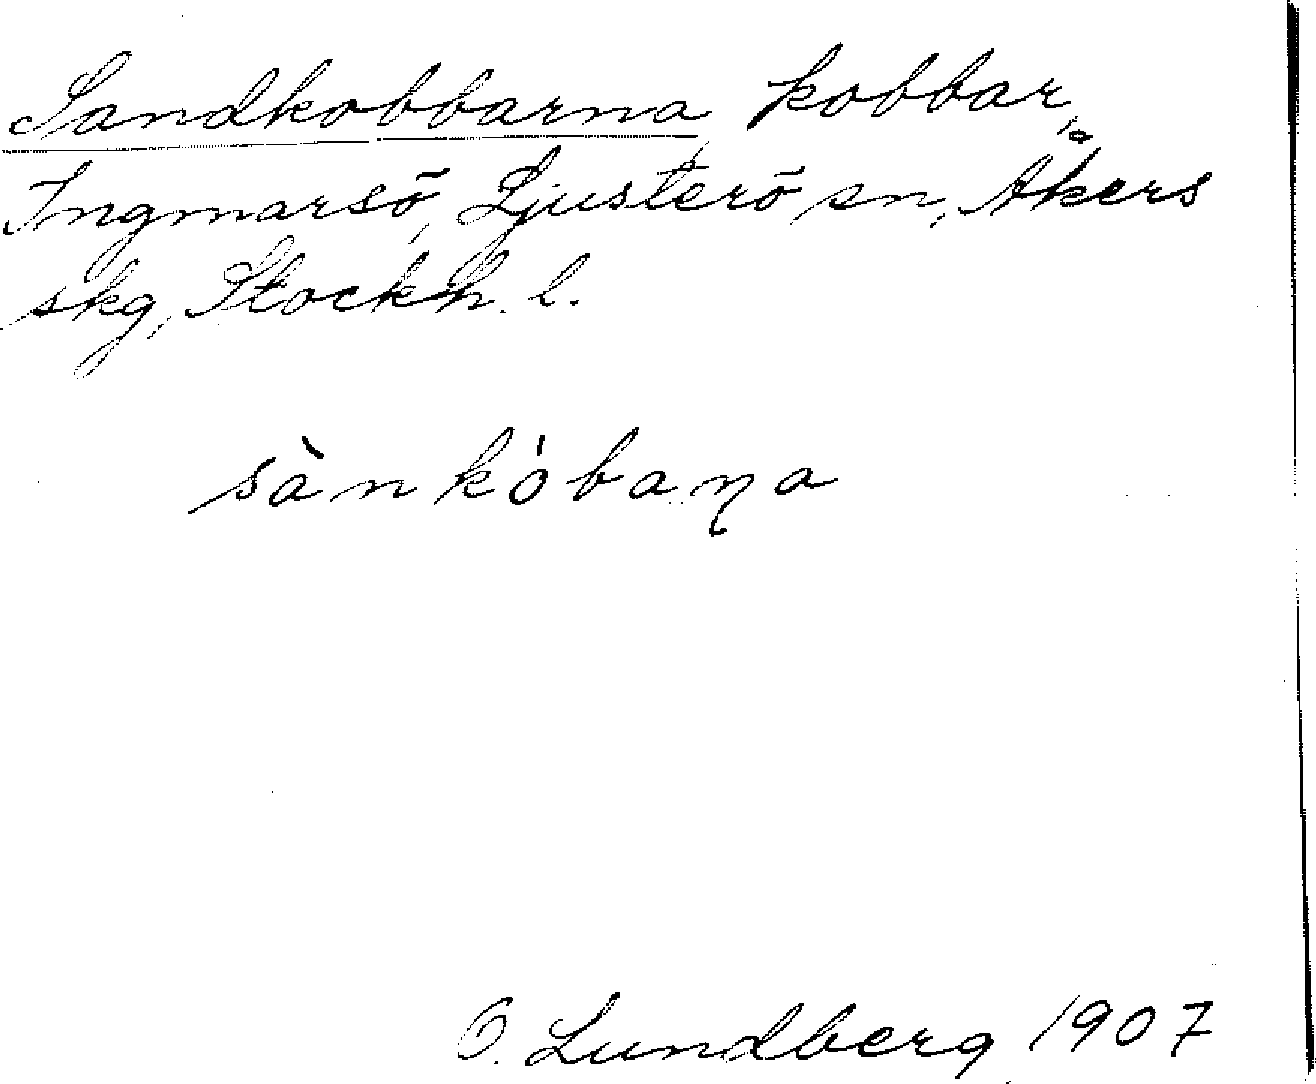 Sandkobbarna, kobbar,
Ingmarsö, Ljusterö sn, Åkers
skg, Stockh. l.
sànkóbaɳa
O. Lundberg 1907